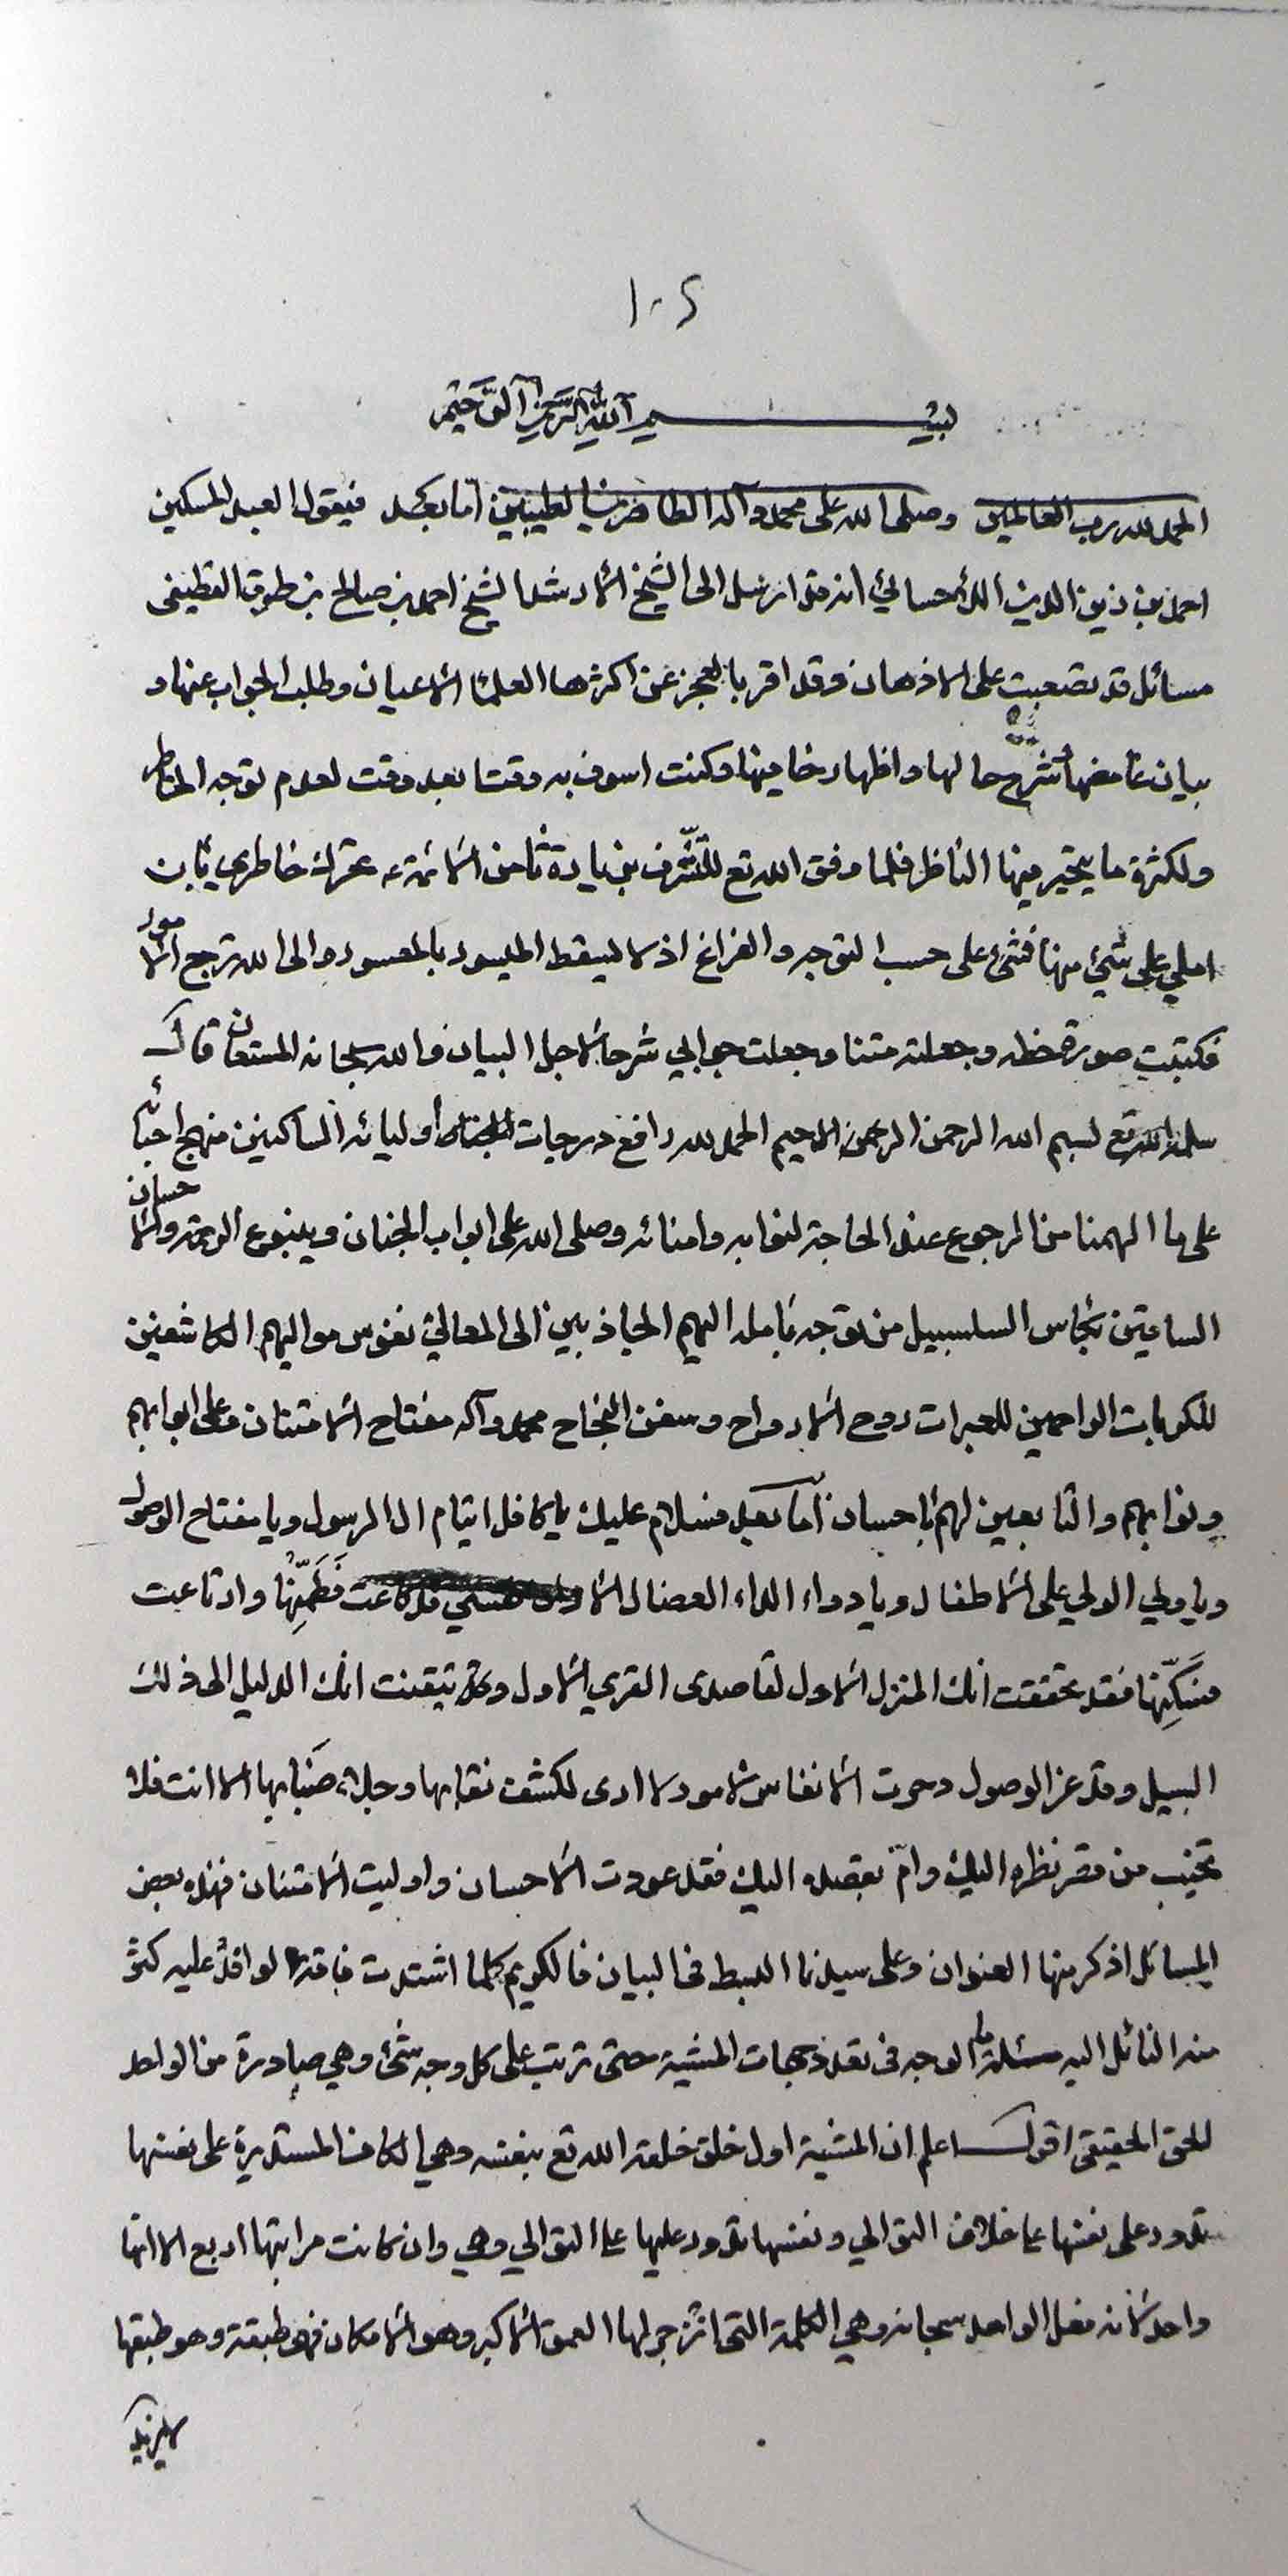 ١٠٢
بسم الله الرحمن الرحيم
الحمد لله رب العالمين وصلى الله على محمد وآله الطاهرين الطيبين اما بعد فيقول العبد المسكين
احمد بن زين الدين الاحسائي انه قد ارسل الى الشيخ الارشد الشيخ احمد بن صالح بن طوق القطيفي
مسائل قد تصعبت على الاذهان وقد اقر بالعجز عن اكثرها العلماء الاعيان وطلب الجواب عنها و
بيان غامضها بشرح حالها واظهار خافيها وكنت اسوف به وقتا بعد وقت لعدم توجه الخاطر
ولكثرة ما يتحير فيها الناظر فلما وفق الله تع للتشرف بزيارة ثامن الائمة ع تحرك خاطري بان
املي على شيء منها فشيء على حسب التوجه والفراغ اذ لا يسقط الميسور بالمعسور والى الله ترجع الامور
فكتبت صورة خطه وجعلته متنا وجعلت جوابي شرحا لاجل البيان والله سبحانه المستعان قال
سلمه الله تع بسم الله الرحمن الرحيم الحمد لله رافع درجات اوليائه السالكين منهج احبائه
على ما الهمنا من الرجوع عند الحاجة لنوابه وامنائه وصلى الله على ابواب الجنان وينبوع الرحمة والاحسان
الساقين بكاس السلسبيل من توجه بامله اليهم الجاذبين الى المعالي نفوس مواليهم الكاشفين
للكربات الراحمين للعبرات روح الارواح وسفن النجاح محمد وآله مفتاح الامتنان وعلى ابوابهم
ونوابهم والتابعين لهم باحسان اما بعد فسلام عليك يا كافل ايتام ال الرسول ويا مفتاح الوصول
ويا ولي الولي على الاطفال ويا دواء الداء العضال فطمنها وارتاعت
فسكنها فقد تحققت انك المنزل الاول لقاصدى القرى الاول وتيقنت انك الدليل الى ذلك
السبيل وقد عز الوصول وحرت الانفاس لامور لا ارى لكشف نقابها وجلاء ضبابها الا انت فلا
تخيب من قصر نظره اليك وام بقصده اليك فقد عودت الاحسان واوليت الامتنان فهذه بعض
المسائل اذكر منها العنوان وعلى سيدنا البسط في البيان فالكريم كلما اشتدت فاقة الوافد عليه كثر
منه النائل اليه مسئلة ما الوجه في تعدد جهات المشية حتى ترتب على كل وجه شيء وهي صادرة من الواحد
الحق الحقيقي اقول اعلم ان المشية اول خلق خلقه الله تع بنفسه وهي الكاف المستديرة على نفسها
تدور على نفسها على خلاف التوالي ونفسها تدور عليها على التوالي وهي وان كانت مراتبها اربع الا انها
واحد لانه فعل الواحد سبحانه وهي الكلمة التي انزجر لها العمق الاكبر وهو الامكان فهو طبقه وهو طبقها